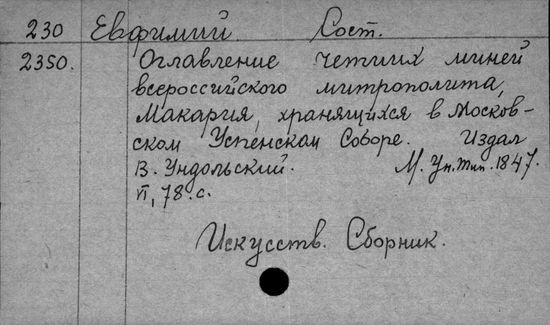 230 Евфимий. Сост.
2350. Оглавление четиих миней
всероссийского митрополита,
Макария, хранящихся в Москов-
ском Успенском Соборе. Издал
В. Ундольский. М. Ун.тип. 1847.
VI, 78.с.
Искусств. Сборник.